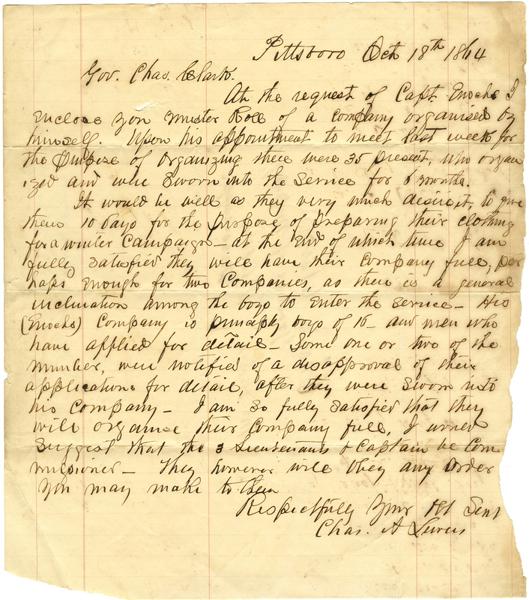 Pittsboro Oct 18th 1864
Gov. Chas. Clark.
At the request of Capt Enochs I
enclose you Muster Role of a Company organised by
himself. Upon his appointment to meet last week for
the purpose of organizing there were 35 present, who organ
ized and were sworn into the service for 6 months.
It would be well as they very much desire it, to give
them 10 days for the purpose of preparing their clothing
for a winter Campaign - at the end of which time I am
fully satisfied they will have their Company full, per
haps enough for two Companies, as there is a general
inclination among the boys to enter the service - His
(Enochs) Company is principly boys of 16 - and men who
have applied for detail - Some one or two of the
number, were notified of a disapproval of their
applications for detail, after they were sworn into
his Company - I am so fully satisfied that they
will organise their Company full, I would
suggest that the 3 Lieutenants & Captain be Com
missioned - They however will obey any order
you may make to them
Respectfully Your Obt Servt
Chas. A Lewis